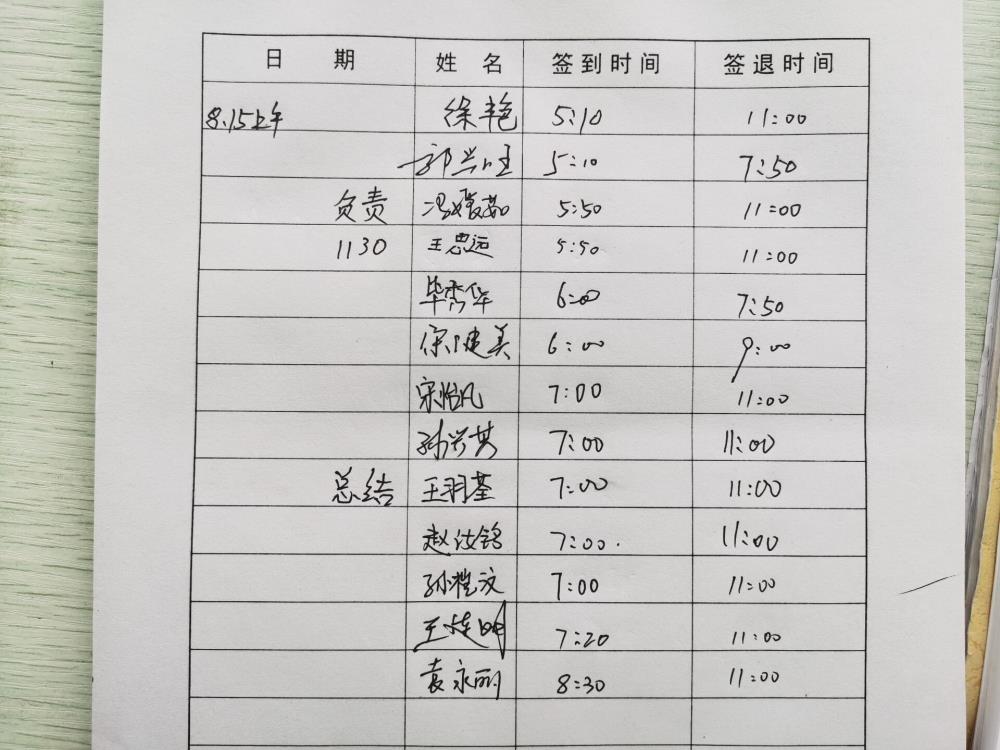 日 期 姓 名 签到时间 签退时间
8.15上午 徐艳 5:10 11:00
郭兴旺 5:10 7:50
负责 冯媛茹 5:50 11:00
1130 王思远 5:50 11:00
毕秀华 6:00 7:50
徐健美 6:00 9:00
宋怡凡 7:00 11:00
孙兴其 7:00 11:00
总结 王羽荃 7:00 11:00
赵汝铭 7:00. 11:00
孙 文 7:00 11:00
王 明 7:20 11:00
袁永丽 8:30 11:00